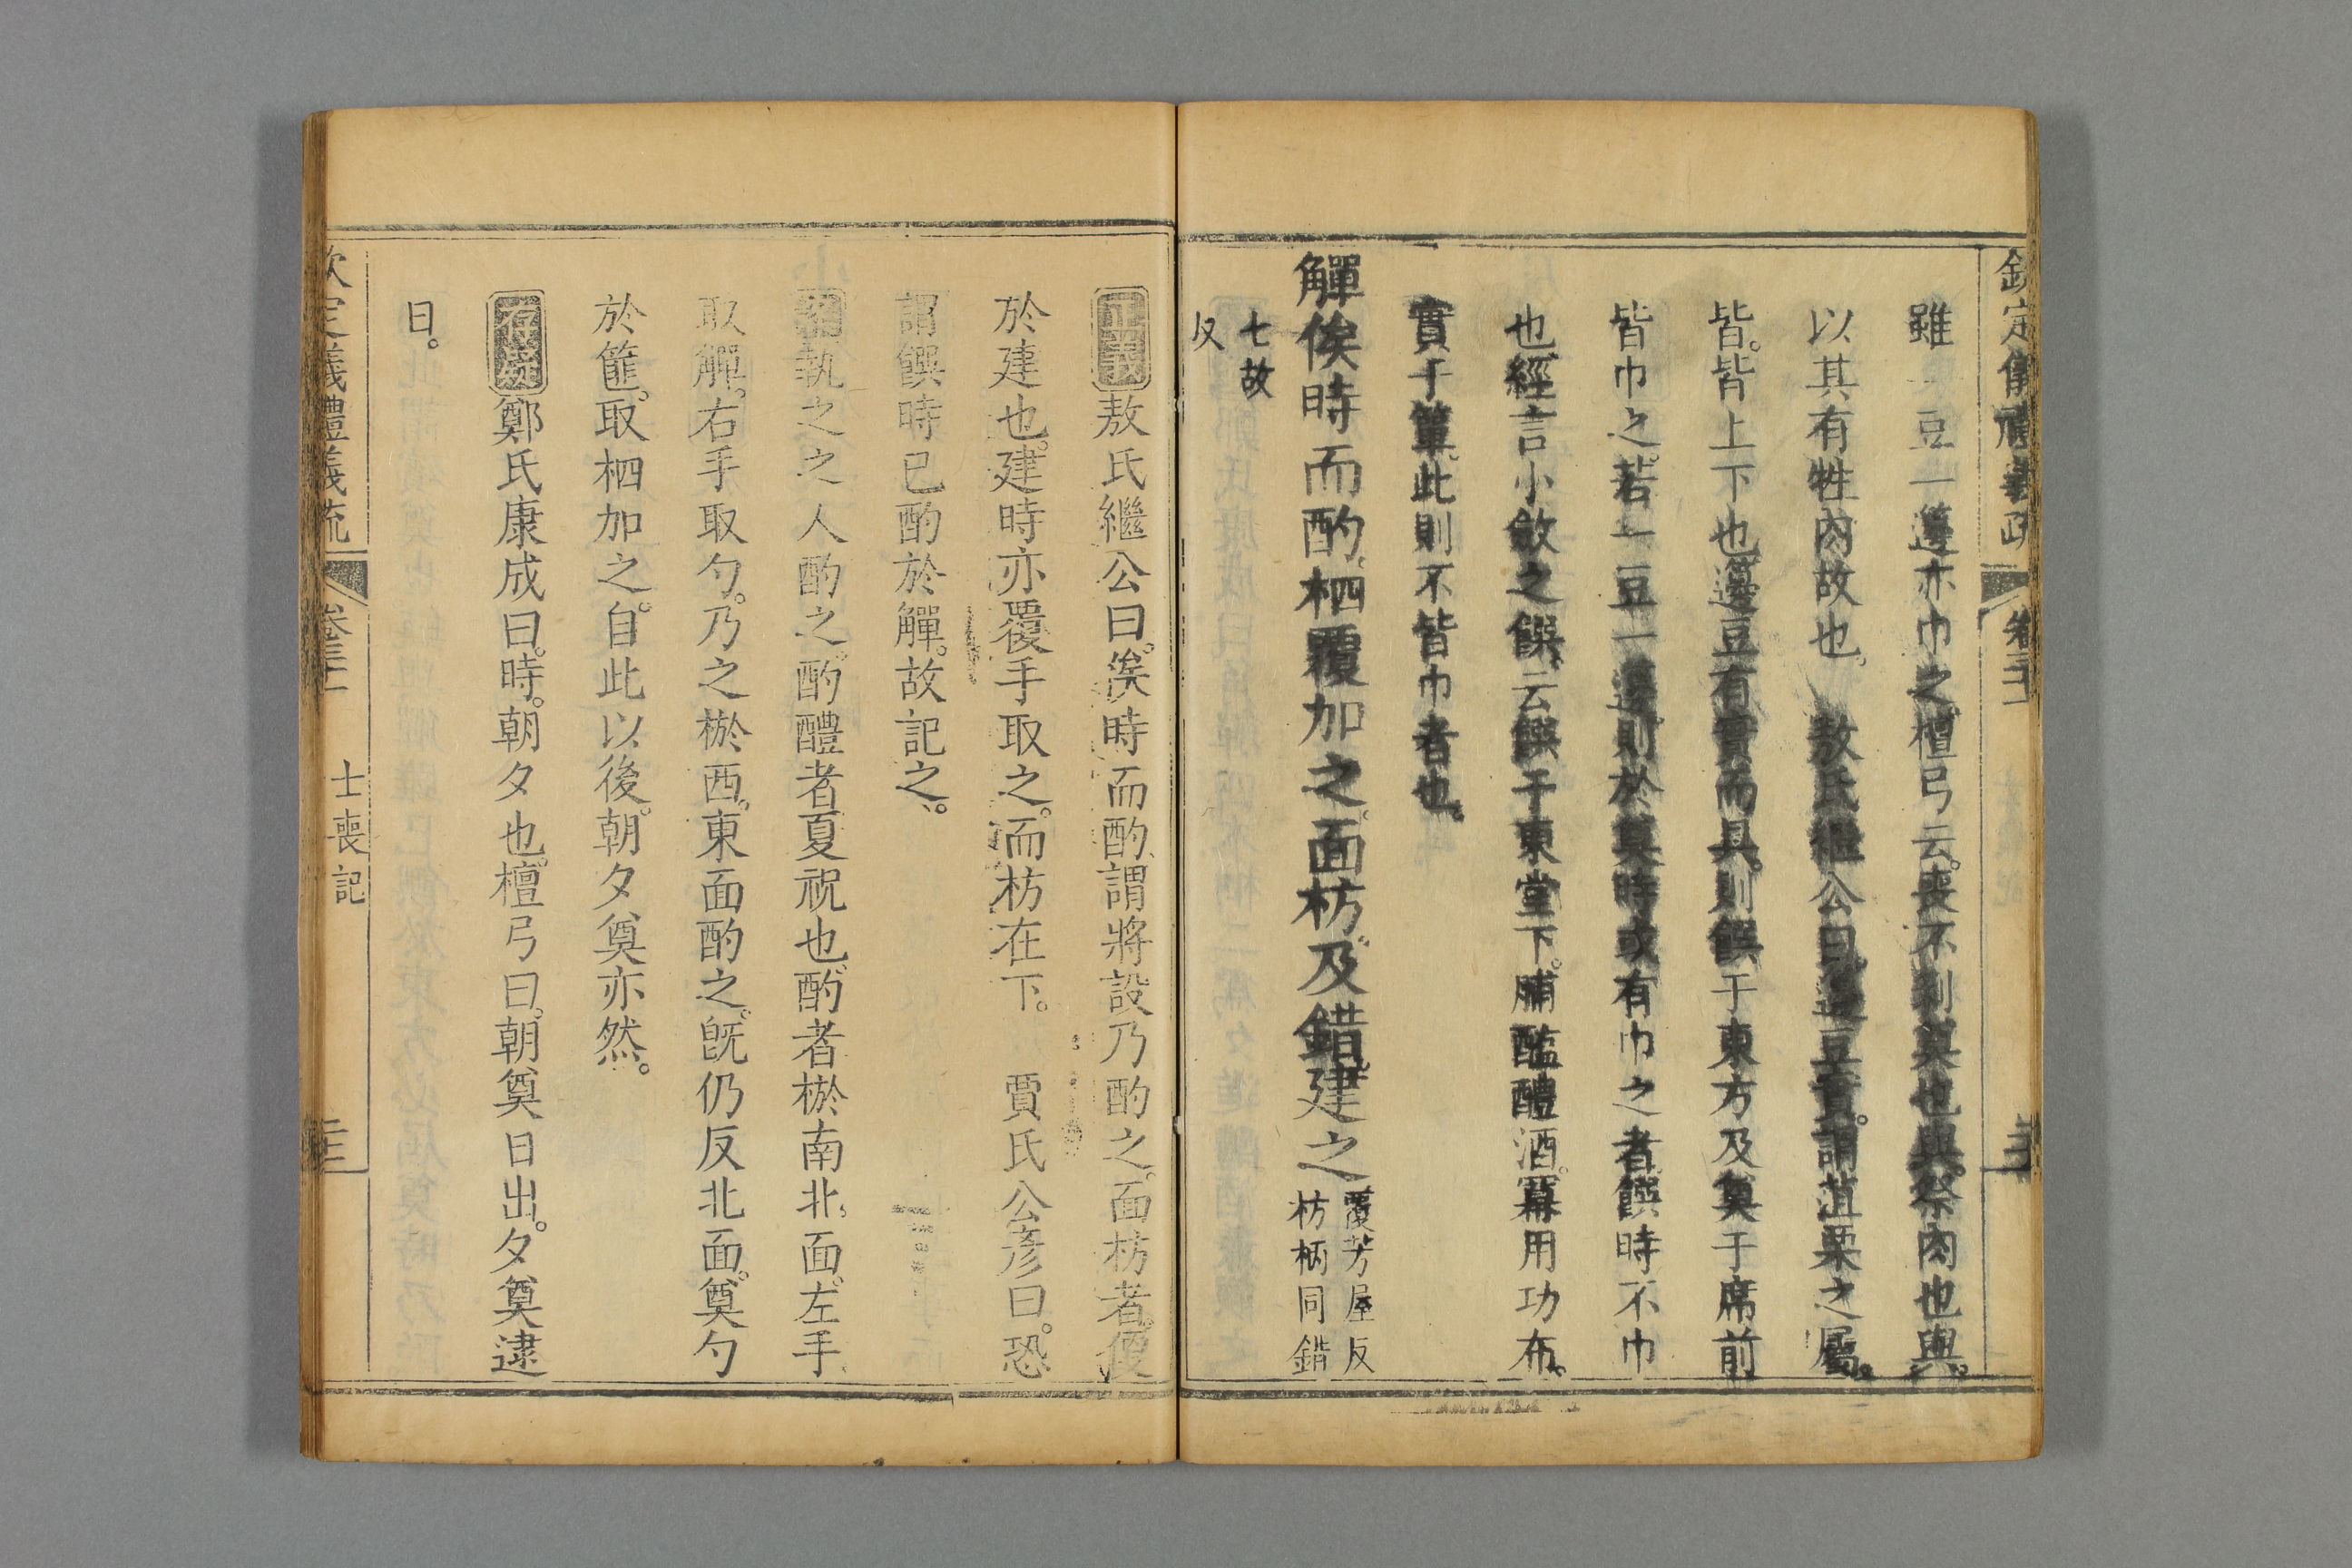 欽定儀禮義疏 卷三十一
雖一豆一籩亦巾之檀弓云喪不剝奠也與祭肉也與
以其有牲肉故也 敖氏繼公曰籩豆實謂菹栗之屬
皆皆上下也籩豆有實而具則饌于東方及奠于席前
皆巾之若一豆一籩則於奠時或有巾之者饌時不巾
也經言小斂之饌云饌于東堂下脯醢醴酒冪用功布
實于簞此則不皆巾者也
觶俟時而酌柶覆加之面枋及錯建之 覆芳屋反
枋柄同錯
七故
反
正義 敖氏繼公曰俟時而酌謂將設乃酌之面枋者便
於建也建時亦覆手取之而枋在下 賈氏公彥曰恐
謂饌時已酌於觶故記之
執之之人酌之酌醴者夏祝也酌者棜南北面左手
取觶右手取勺乃之棜西東面酌之既仍反北面奠勺
於篚取柶加之自此以後朝夕奠亦然
存疑 鄭氏康成曰時朝夕也檀弓曰朝奠日出夕奠逮
日
欽定儀禮義疏 卷三十一 士喪記